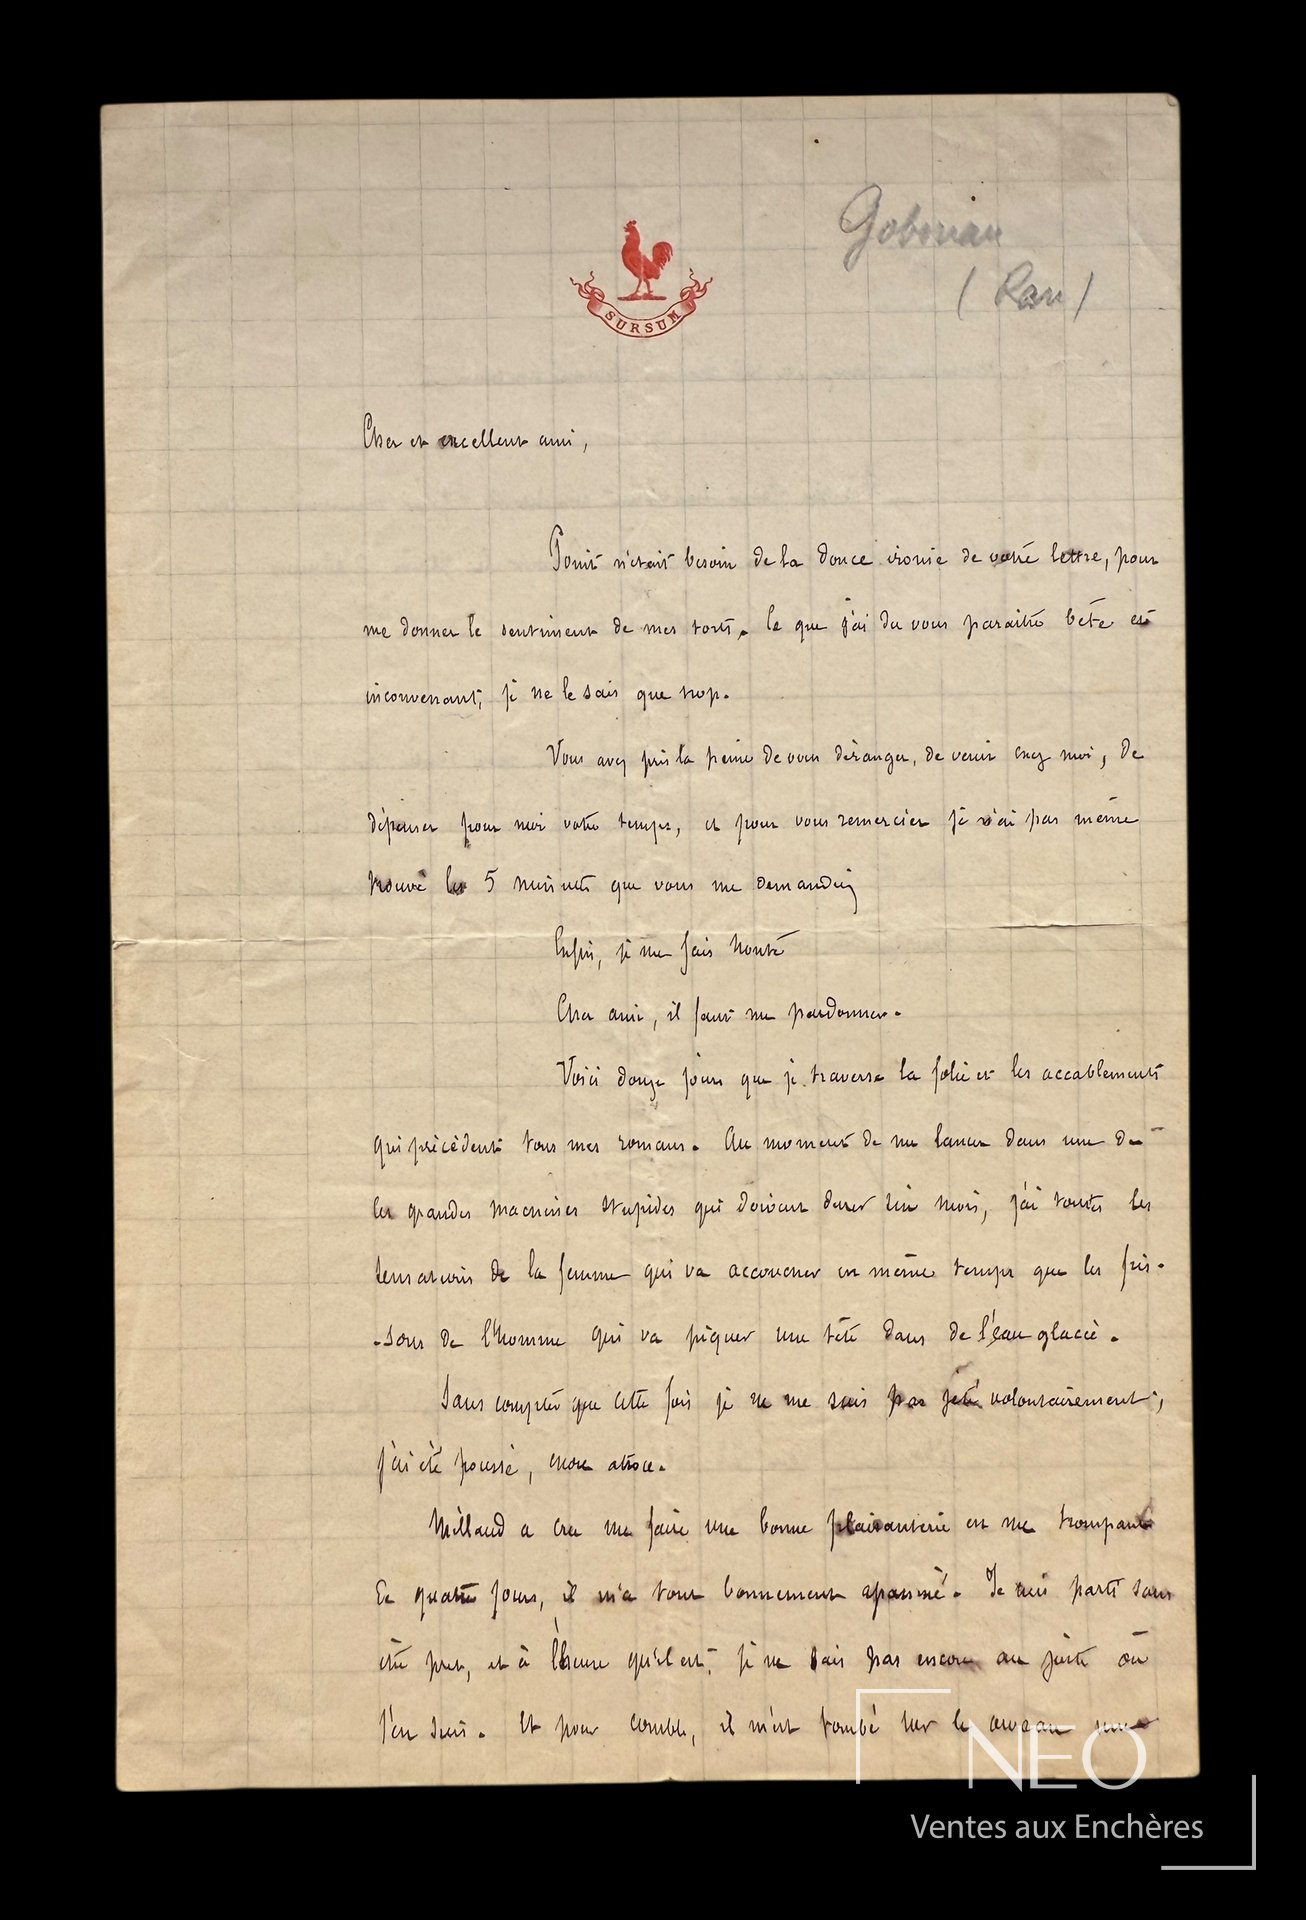 Gaboriau
(Rare)
SURSUM
Cher et excellent ami,
Point n'était besoin de la douce ironie de votre lettre, pour
me donner le sentiment de mes torts. Ce que j'ai du vous paraitre bête et
inconvenant, je ne le sais que trop.
Vous avez pris la peine de vous déranger, de venir chez moi, de
dépenser pour moi votre temps, et pour vous remercier je n'ai pas même
trouvé les 5 minutes que vous me demandiez
Enfin, je me fais honte
Cher ami, il faut me pardonner.
Voici douze jours que je traverse la folie et les accablements
qui précèdent tous mes romans. Au moment de me lancer dans une de
ces grandes machines stupides qui doivent durer six mois, j'ai toutes les
sensations de la femme qui va accoucher en même temps que les fris-
-sons de l'homme qui va piquer une tête dans de l'eau glacée.
Sans compter que cette fois je ne me suis pas jeté volontairement;
j'ai été poussé, chose atroce.
Millaud a cru me faire une bonne plaisanterie en me trompant
de quatre jours, il m'a tout bonnement assassiné. Je suis parti sans
être pret, et à l'heure qu'il est, je ne sais pas encore au juste où
j'en suis. Et pour comble, il m'est tombé sur le cerveau une
NEO
Ventes aux Enchères